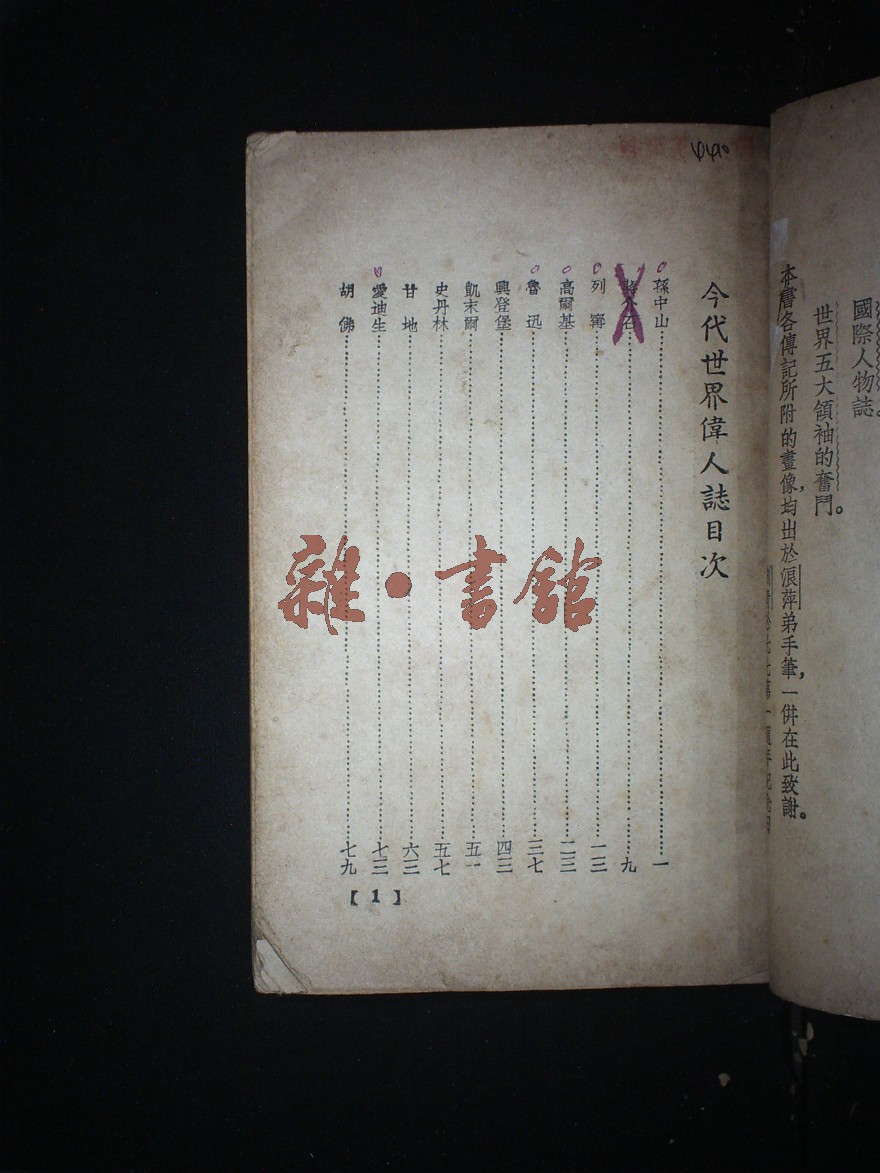 國際人物誌。
世界五大領袖的奮鬥。
本書各傳記所附的畫像，均出於浪萍弟手筆，一併在此致謝。
今代世界偉人誌目次
孫中山……一
蔣介石……九
列寗……一三
高爾基……二三
魯迅……三七
興登堡……四三
凱末爾……五一
史丹林……五七
甘地……六三
愛迪生……七三
胡佛……七九
【1】
雜·書館